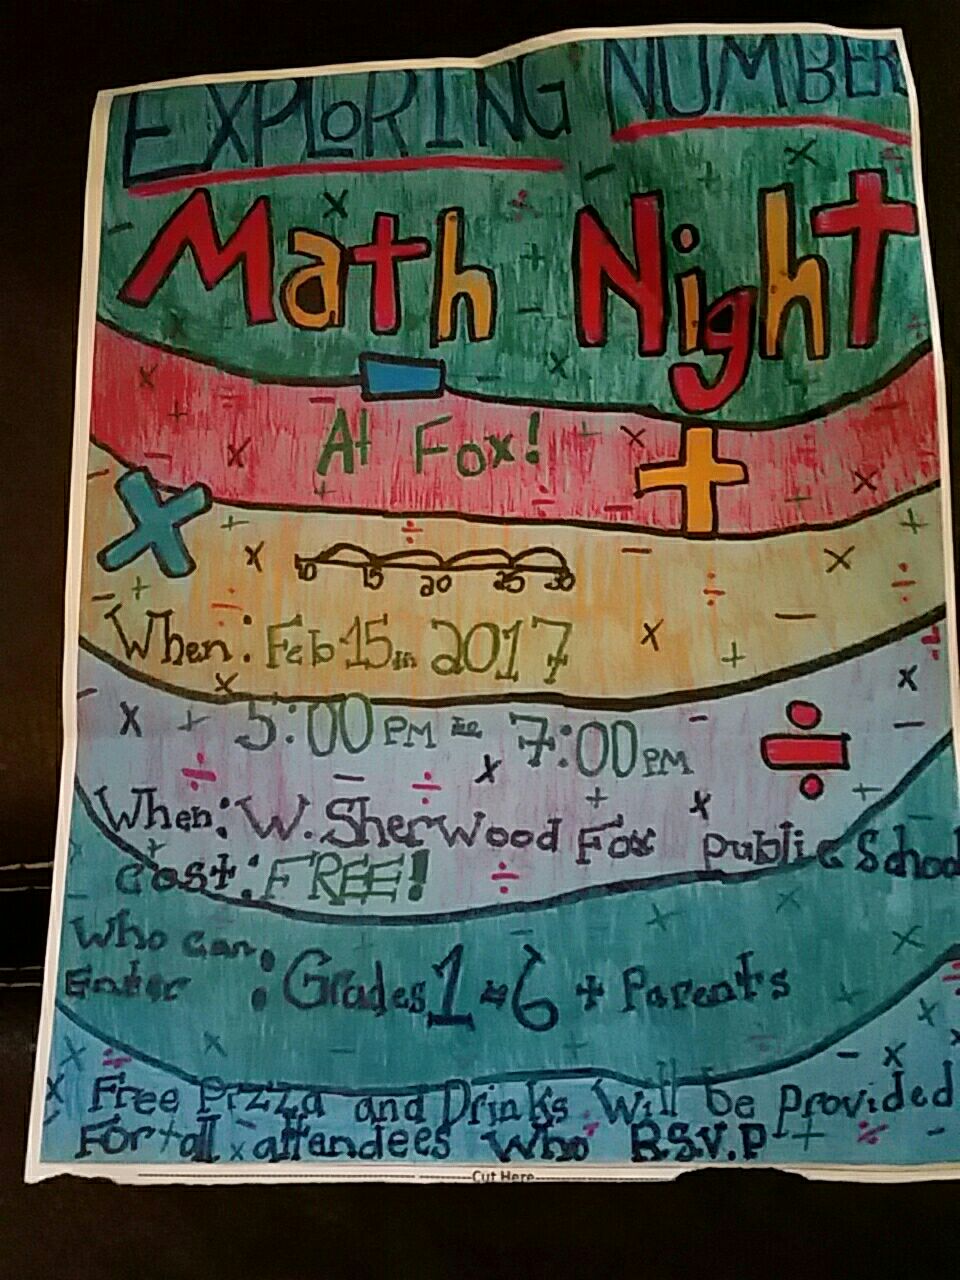 EXPLORING NUMBER
Math Night
At Fox!
10 15 20 25 30
When: Feb 15th 2017
5:00 PM to 7:00 PM
When: W. Sherwood Fox public School
cost: FREE!
Who can
Enter : Grades 1 to 6 + Parents
Free Pizza and Drinks Will be provided
For all attendees who R.S.V.P
Cut Here